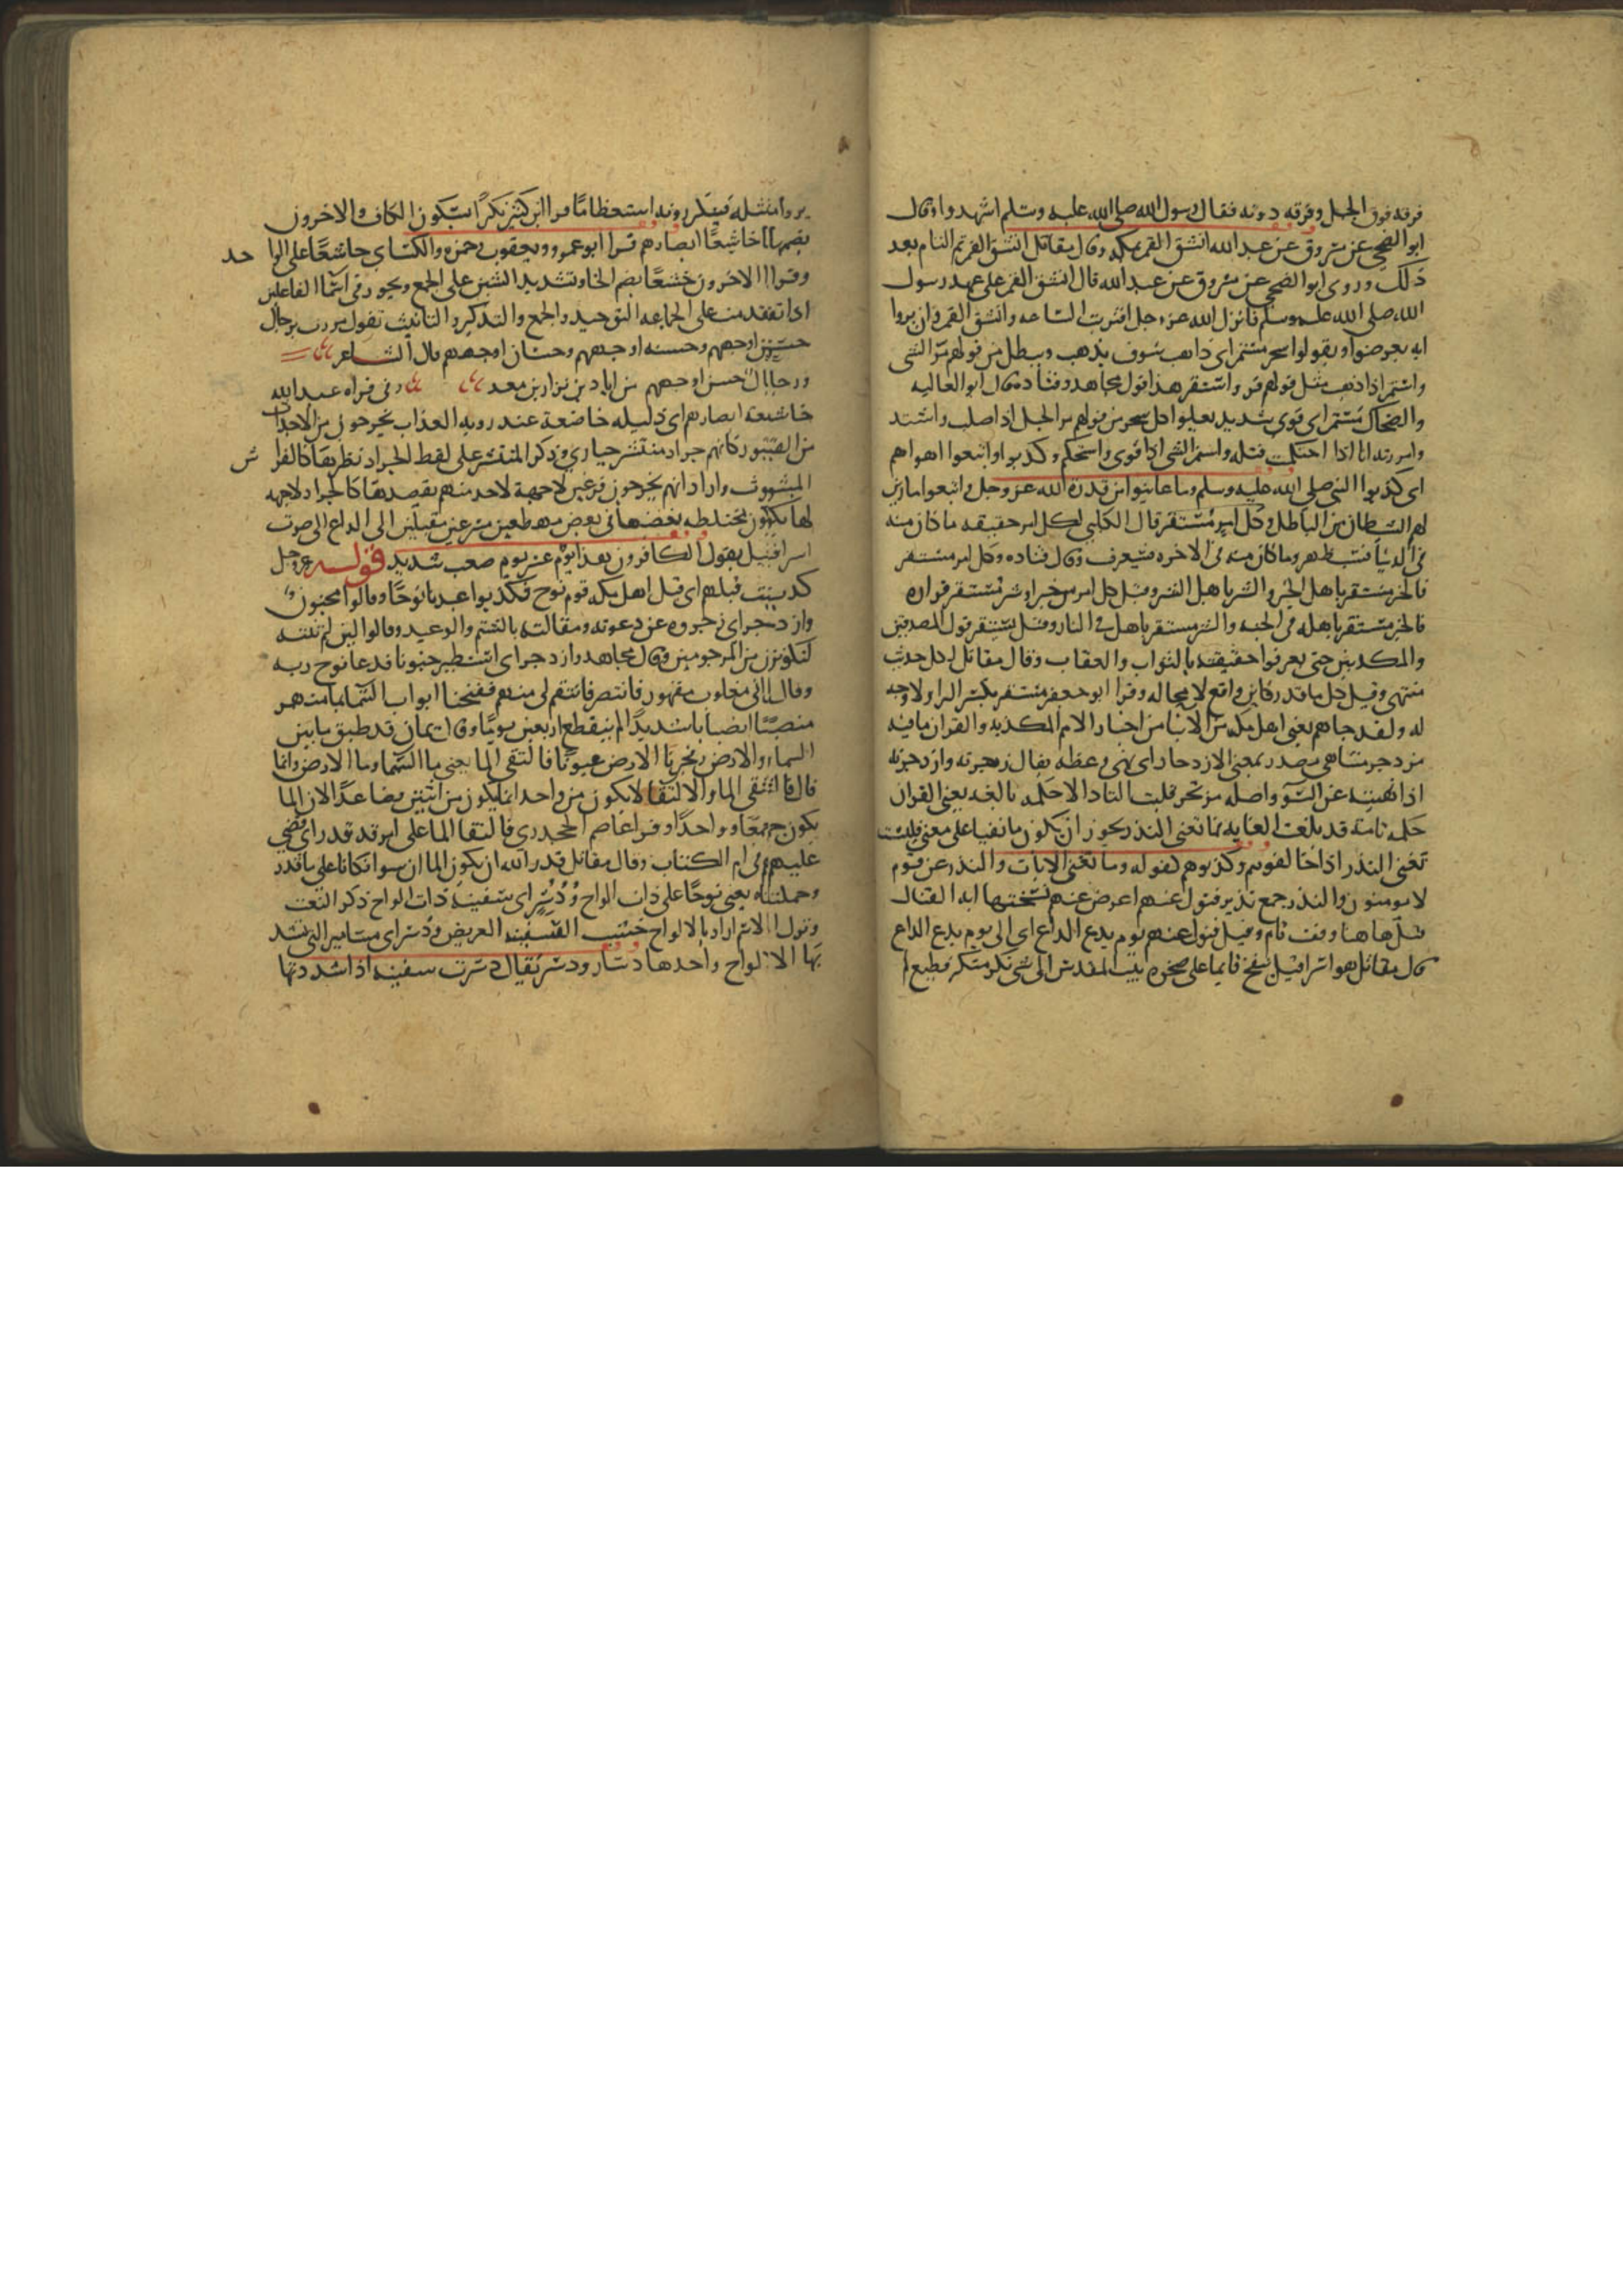 فرقه فوق الجبل وفرقه دونه فقال رسول الله صلى الله عليه وسلم اشهدوا وقال
ابو الضحى عن مسروق عن عبد الله انشق القمر بمكه وقال مقاتل انشق القمر ثم التام بعد
ذلك وروى ابو الضحى عن مسروق عن عبد الله قال انشق القمر على عهد رسول
الله صلى الله عليه وسلم فانزل الله عز وجل اقتربت الساعه وانشق القمر وان يروا
ايه يعرضوا ويقولوا سحر مستمر اى ذاهب سوف يذهب ويبطل من قولهم مر الشى
واستمر اذا ذهب مثل قولهم قر واستقر هذا قول مجاهد وقتاده وقال ابو العاليه
والضحاك مستمر اى قوى شديد يعلوا كل سحر من قولهم مر الحبل اذا صلب واشتد
وامررته انا اذا احكمت فتله واستمر الشى اذا قوى واستحكم وكذبوا واتبعوا اهواهم
اى كذبوا النبى صلى الله عليه وسلم وما عاينوا من قدرة الله عز وجل واتبعوا ما زين
لهم الشيطان من الباطل وكل امر مستقر قال الكلبي لكل امر حقيقه ما كان منه
فى الدنيا فسيظهر وما كان منه فى الاخره فسيعرف وقال قتاده وكل امر مستقر
فالخير مستقر باهل الخير والشر باهل الشر وقيل كل امر من خير او شر مستقر قراره
فالخير مستقر باهله فى الجنه والشر مستقر باهله فى النار وقيل يستقر قول المصدقين
والمكذبين حتى يعرفوا حقيقته بالثواب والعقاب وقال مقاتل لكل حديث
منتهى وقيل كل ما قدر كاين واقع لا محاله وقرا ابو جعفر مستقر بكسر الرا ولا وجه
له ولقد جاهم يعنى اهل مكه من الانبا من اخبار الامم المكذبه والقران ما فيه
مزدجر متناهى مصدر بمعنى الازدجار اى نهى وعظه يقال زجرته وازدجرته
اذا نهيته عن السو واصله مزتجر قلبت التا دالا حكمه بالغه يعنى القران
حكمه تامه قد بلغت الغايه فما تغنى النذر يجوز ان يكون ما نفيا على معنى فليست
تغنى النذر اذا خالفوهم وكذبوهم كقوله وما تغنى الايات والنذر عن قوم
لا يومنون والنذر جمع نذير فتول عنهم اعرض عنهم نسختها ايه القتال
قيل هاهنا وقف تام وقيل فتول عنهم يوم يدع الداع اى الى يوم يدع الداع
قال مقاتل هو اسرافيل ينفخ قايما على صخره بيت المقدس الى شى نكر منكر فظيع لم
يروا مثله فينكرونه استعظاما قرا ابن كثير نكرا بسكون الكاف والاخرون
بضمها خاشعا ابصارهم قرا ابو عمرو ويعقوب وحمزه والكساى خاشعا على الوا حد
وقرا الاخرون خشعا بضم الخا وتشديد الشين على الجمع ويجوز فى اسما الفاعلين
اذا تقدمت على الجماعه التوحيد والجمع والتذكير والتانيث تقول مررت برجال
حسن اوجههم وحسنه اوجههم وحسان اوجههم قال الشاعر
ورجال حسن اوجههم من اياد بن نزار بن معد وفى قراه عبد الله
خاشعة ابصارهم اى ذليله خاضعة عند رويه العذاب يخرجون من الاجداث
من القبور كانهم جراد منتشر حيارى وذكر المنتشر على لفظ الجراد نظيرها كالفرا ش
المبثوث واراد انهم يخرجون فزعين لا جهة لاحد منهم يقصدها كالجراد لا جهه
لها تكون مختلطه بعضها فى بعض مهطعين مسرعين مقبلين الى الداع الى صوت
اسرافيل يقول الكافرون هذا يوم عسر يوم صعب شديد قوله عز وجل
كذبت قبلهم اى قبل اهل مكه قوم نوح فكذبوا عبدنا نوحا وقالوا مجنون
وازدجر اى زجروه عن دعوته ومقالته بالشتم والوعيد وقالوا لين لم تنته
لتكونن من المرجومين وقال مجاهد وازدجر اى استطير جنونا فدعا نوح ربه
وقال انى مغلوب مقهور فانتصر فانتقم لى منهم ففتحنا ابواب السما بما منهمر
منصبا انصبابا شديدا لم ينقطع اربعين يوما وقال يمان قد طبق ما بين
السماء والارض وفجرنا الارض عيونا فالتقى الما يعنى ما السما وما الارض وانما
قال فالتقى الما والالتقا لا يكون من واحد انما يكون من اثنين فصاعدا لان الما
يكون جمعا وواحدا وقرا عاصم الجحدرى فالتقا الماان على امر قد قدر اى قضى
عليهم فى ام الكتاب وقال مقاتل قدر الله ان يكون الماان سوا فكانا على ما قدر
وحملناه يعنى نوحا على ذات الواح ودسر اى سفينة ذات الواح ذكر النعت
وترك الاسم اراد بالالواح خشب السفينه العريض ودسر اى مسامير التى تشد
بها الالواح واحدها دسار ودسر يقال دسرت سفينه اذا شددتها